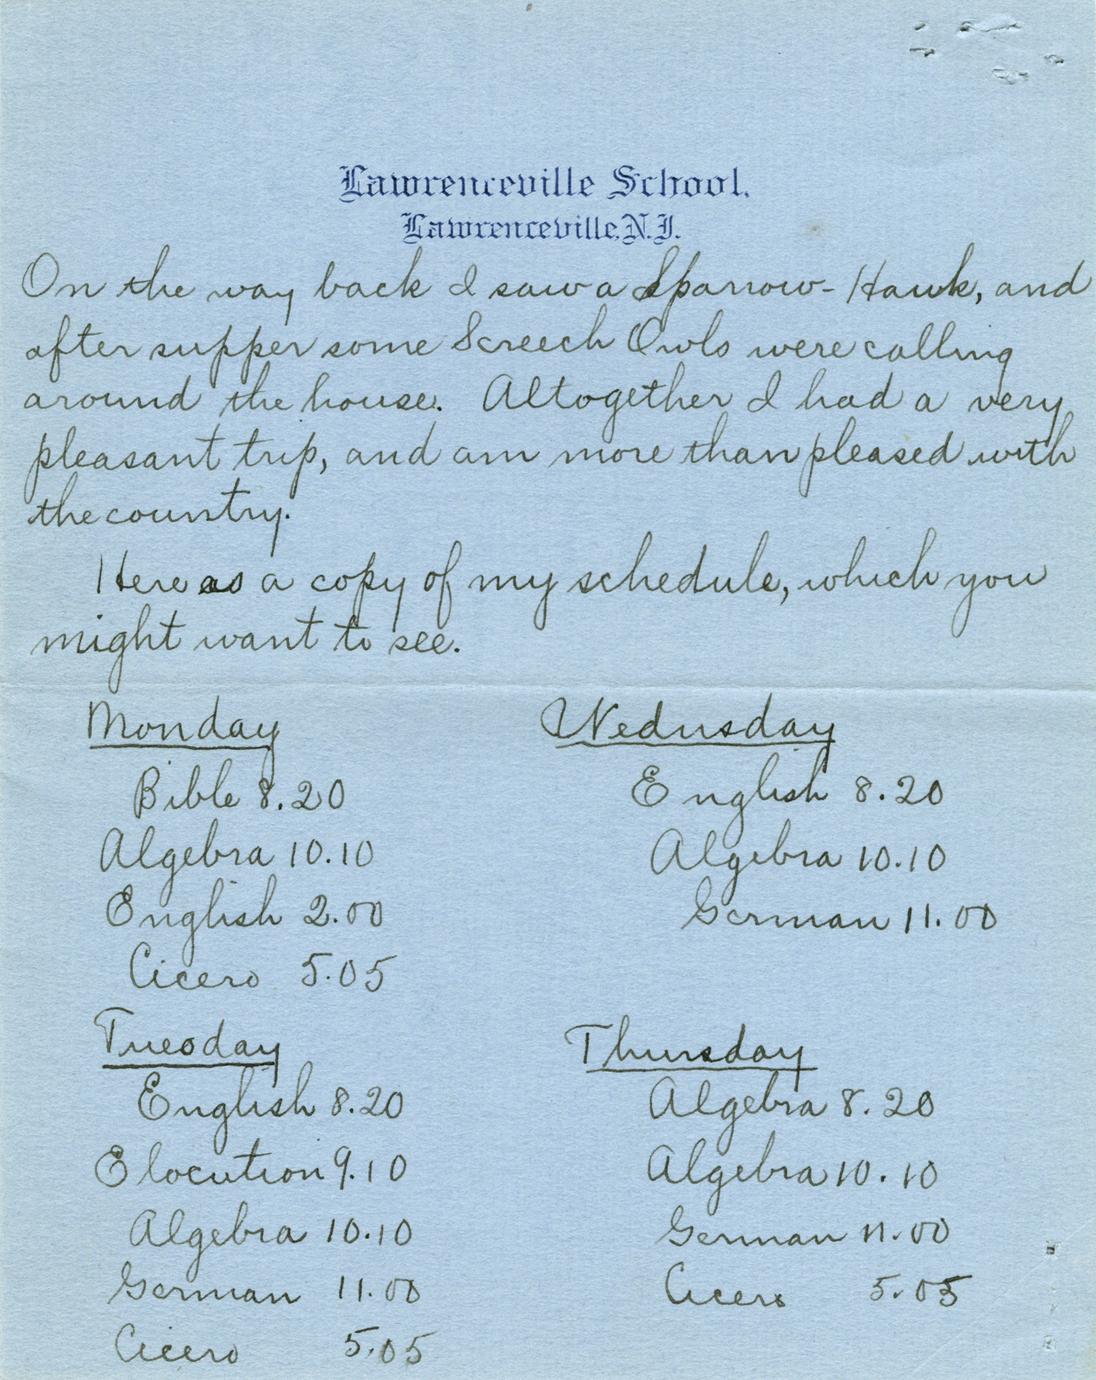 Lawrenceville School.
Lawrenceville, N.J.
On the way back I saw a Sparrow-Hawk, and
after supper some Screech Owls were calling
around the house. Altogether I had a very
pleasant trip, and am more than pleased with
the country.
Here as a copy of my schedule, which you
might want to see.
Monday
Bible 8.20
Algebra 10.10
English 2.00
Cicero 5.05
Tuesday
English 8.20
Elocution 9.10
Algebra 10.10
German 11.00
Cicero 5.05
Wednsday
English 8.20
Algebra 10.10
German 11.00
Thursday
Algebra 8.20
Algebra 10.10
German 11.00
Cicero 5.05